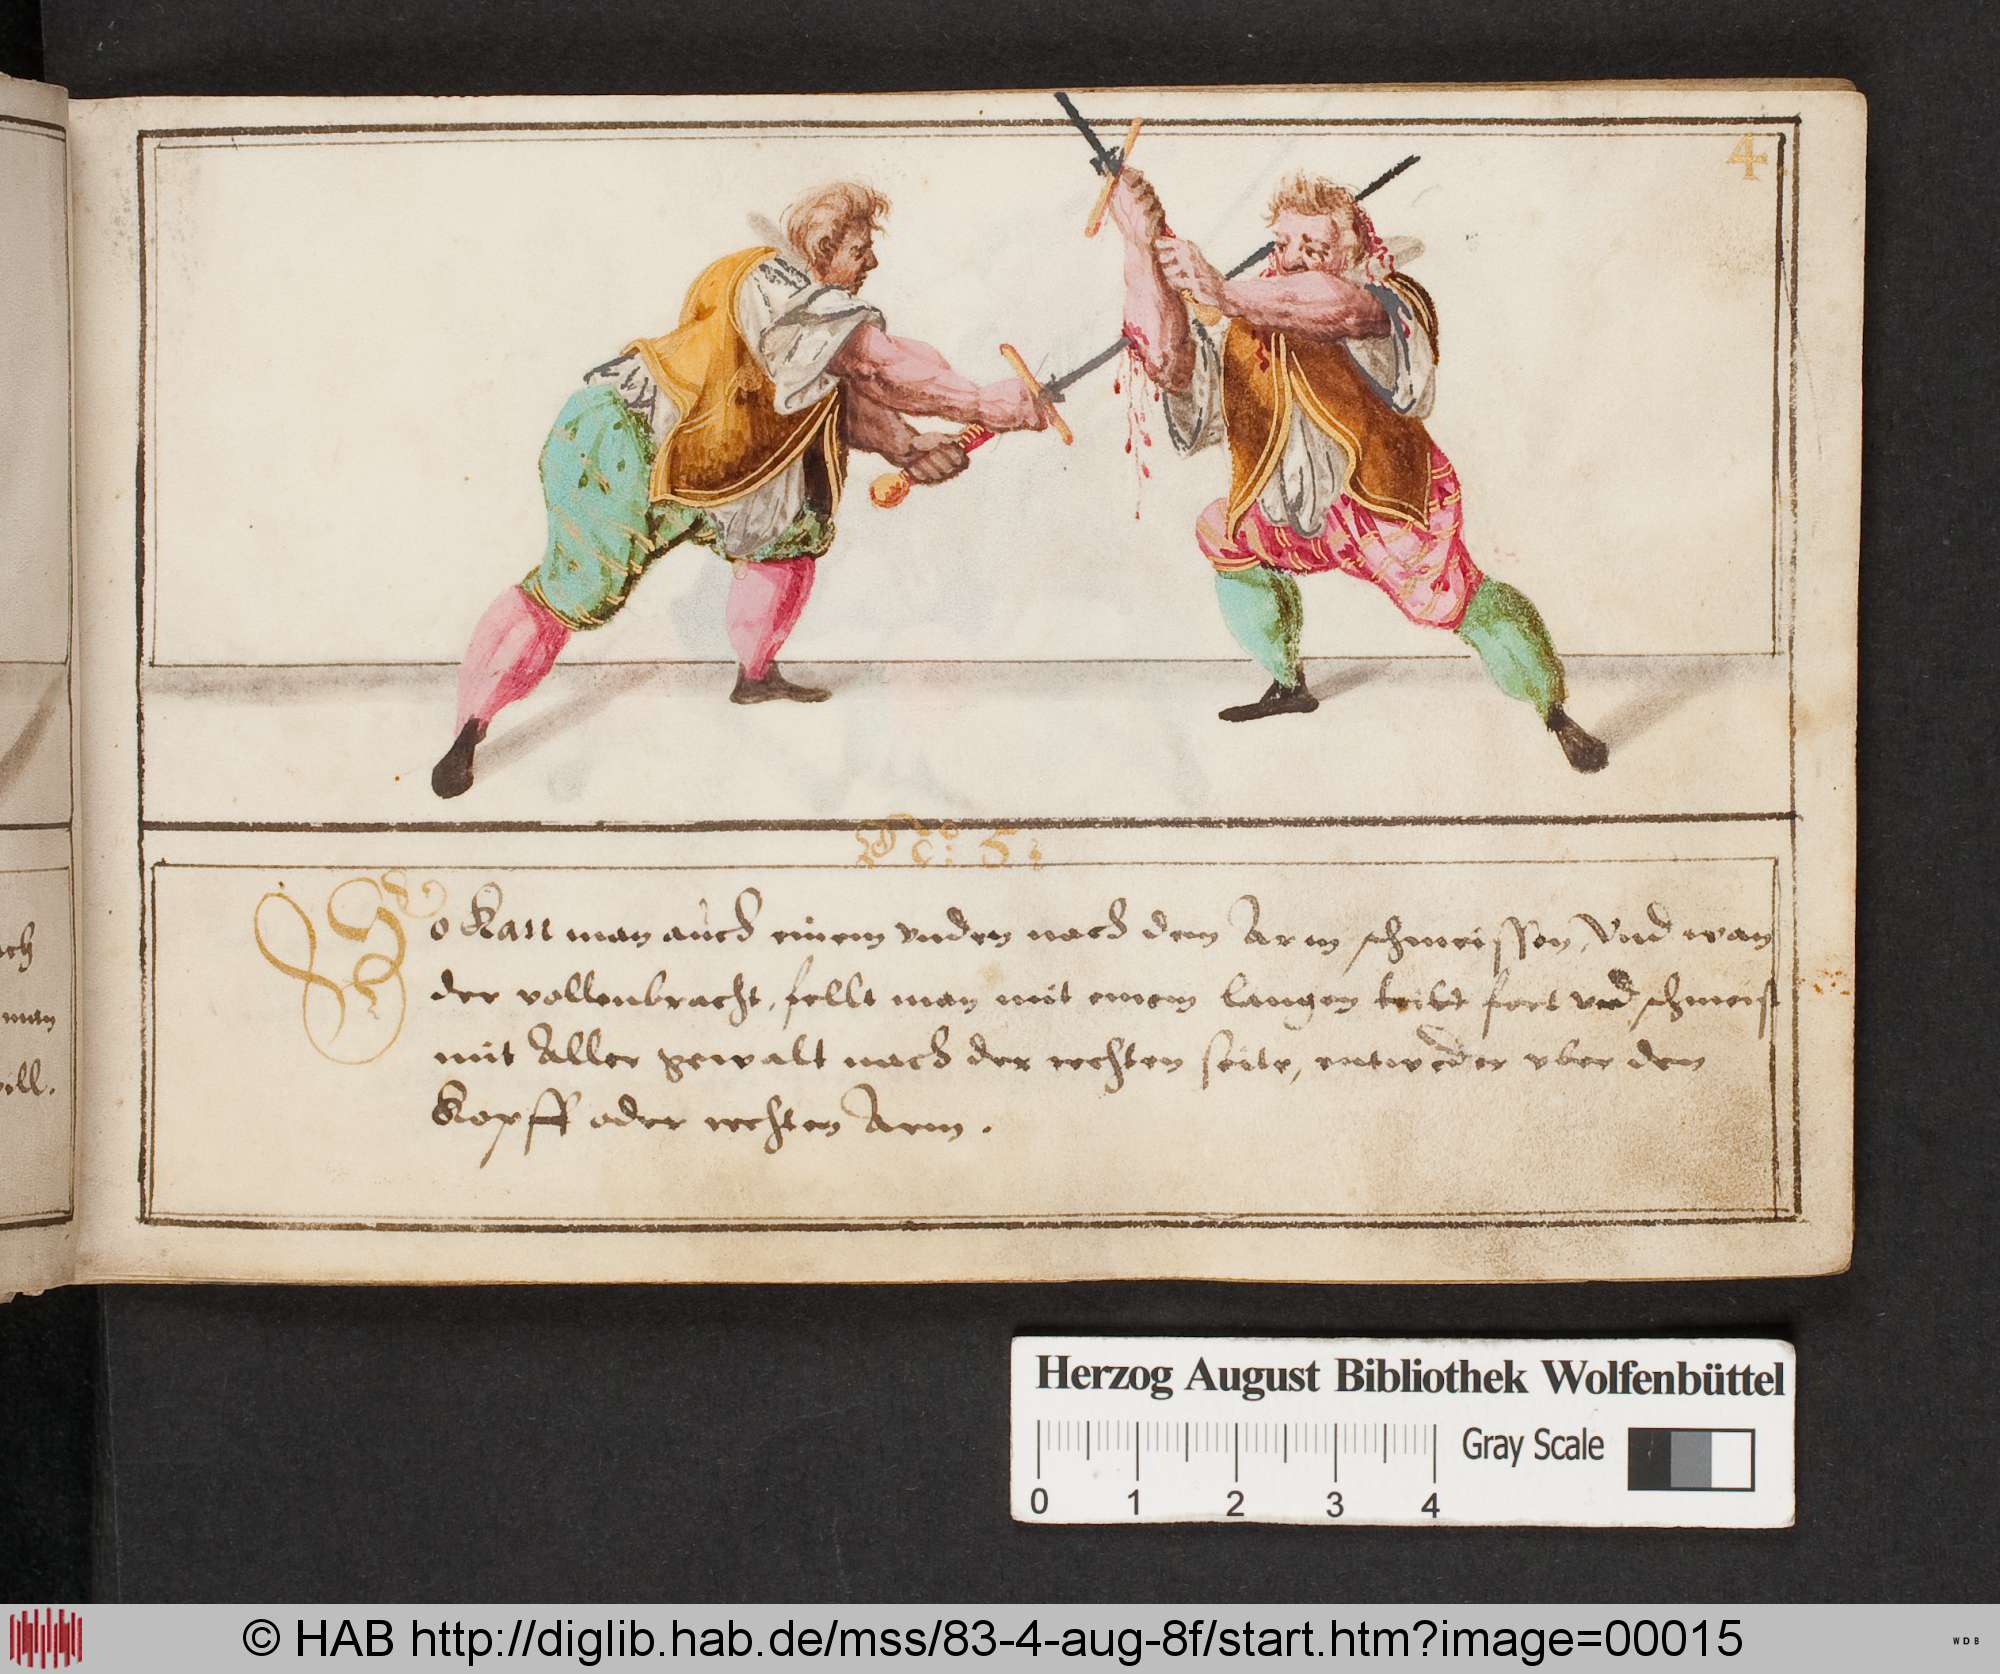 4
No: 5:
So kan man auch einem vnden nach dem Arm schmeissen, Vnd wan
der vollenbracht, fellt man mit einem langen tritt fort vnd schmeist
mit Aller gewalt nach der rechten seite, entweder vber den
Kopff oder rechten Arm.
ach
man
will.
Herzog August Bibliothek Wolfenbüttel
0 1 2 3 4
Gray Scale
© HAB http://diglib.hab.de/mss/83-4-aug-8f/start.htm?image=00015
WDB